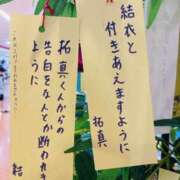 結衣と
付きあえますように
拓真
拓真くんからの
告白をなんとか断われます
ように
結